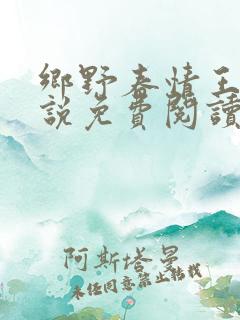 鄉野春情王
說免費閱讀
阿斯塔曼
未經同意禁止轉載